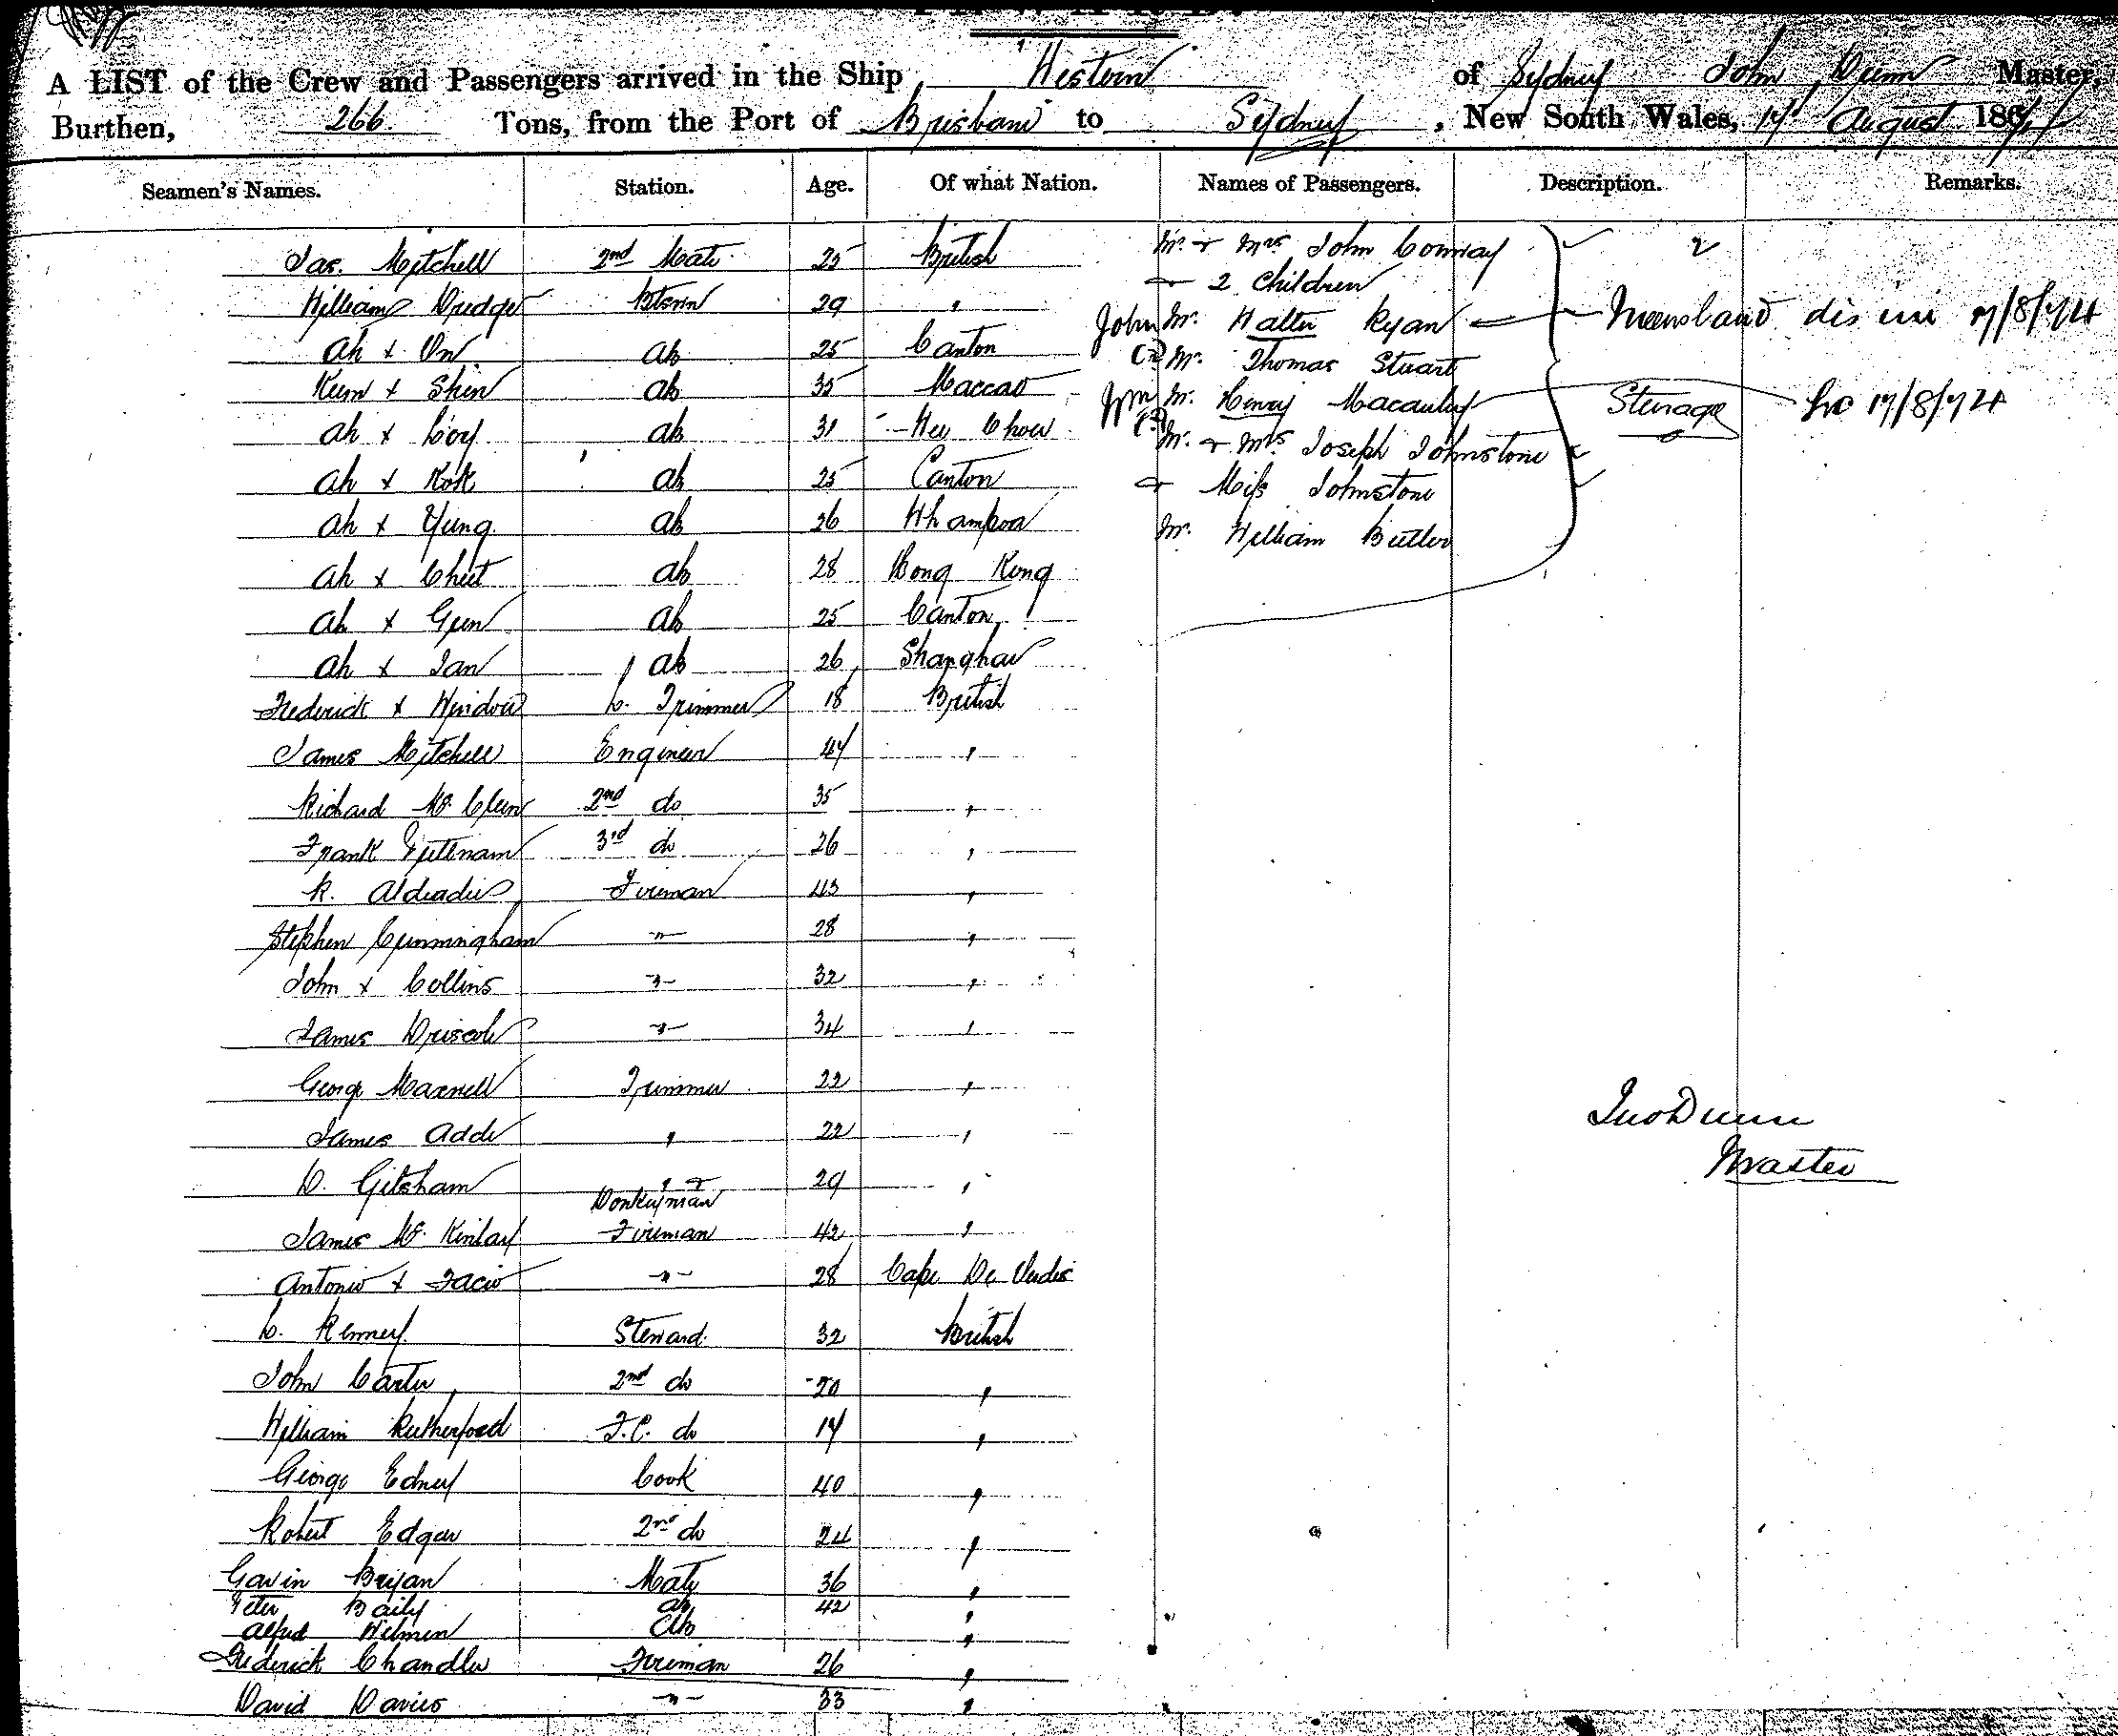 A LIST of the Crew and Passengers arrived in the Ship Western of Sydney John Dunn Master,
Burthen, 266 Tons, from the Port of Brisbane to Sydney, New South Wales, 17 August 187
Seamen's Names. Station. Age. Of what Nation. Names of Passengers. Description. Remarks.
Jas. Mitchell 2nd Mate 25 British Mr. & Mrs John Conway 2
& 2 Children
William Dredge Btswn 29 " John Mr. Walter Ryan Queensland 17/8/74
Ah x On ab 25 Canton Mr. Thomas Stuart
Kum x Shin ab 35 Maccao Mr. Henry Macauley Steerage do 17/8/74
Ah x Coy ab 31 Chow Mr. & Mrs Joseph Johnstone
Ah x Kok ab 25 Canton & Miss Johnstone
Ah x Yung ab 26 Whampoa Mr. William Butler
Ah x Cheet ab 28 Hong Kong
Ah x Gun ab 25 Canton
Ah x Ian ab 26 Shanghai
Frederick x Window Trimmer 18 British
James Mitchell Engineer 47 "
Richard Mc. 2nd do 35 "
Frank Puttnam 3rd do 26 "
R. Fireman 43 "
Stephen Cunningham -"- 28 "
John x Collins -"- 32 "
James Driscoll -"- 34 "
George Maxwell Trimmer 22 "
James Adde " 22 "
D. Gitsham " & 29 "
Donkeyman
James Mc. Kinlay Fireman 42 "
Antonio x Facio -"- 28 Cape De Verdes
C. Kenney Steward 32 British
John Carter 2nd do 20 "
William Rutherford F.C. do 17 "
George Edney Cook 40 "
Robert Edgar 2nd do 24 "
Gavin Bryan Mate 36 "
Peter Baily ab 42 "
Alfred Wilmen ab "
Frederick Chandler Fireman 26 "
David Davies -"- 33 "
Jno Dunn
Master